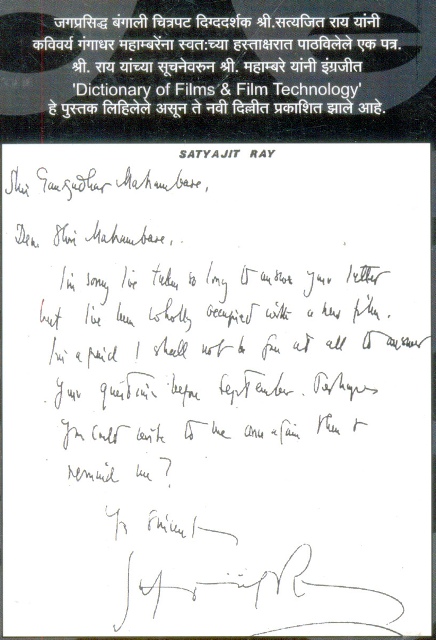 जगप्रसिद्ध बंगाली चित्रपट दिग्ददर्शक श्री.सत्यजित राय यांनी
कविवर्य गंगाधर महाम्बरेंना स्वत:च्या हस्ताक्षरात पाठविलेले एक पत्र.
श्री. राय यांच्या सूचनेवरुन श्री. महाम्बरे यांनी इंग्रजीत
'Dictionary of Films & Film Technology'
हे पुस्तक लिहिलेले असून ते नवी दिल्लीत प्रकाशित झाले आहे.
SATYAJIT RAY
Shri Gangadhar Mahambare,
Dear Shri Mahambare,
I'm sorry I've taken so long to answer your letter
but I've been wholly occupied with a new film.
I'm afraid I shall not be free at all to answer
your questions before September. Perhaps
you could write to me once again then &
remind me?
Yrs Sincerely
Satyajit Ray